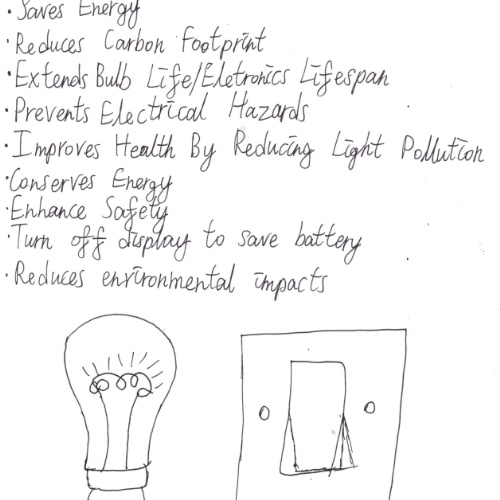 ·Saves Energy
·Reduces Carbon Footprint
·Extends Bulb Life/Eletronics Lifespan
·Prevents Electrical Hazards
·Improves Health By Reducing Light Pollution
·Conserves Energy
·Enhance Safety
·Turn off display to save battery
·Reduces environmental impacts